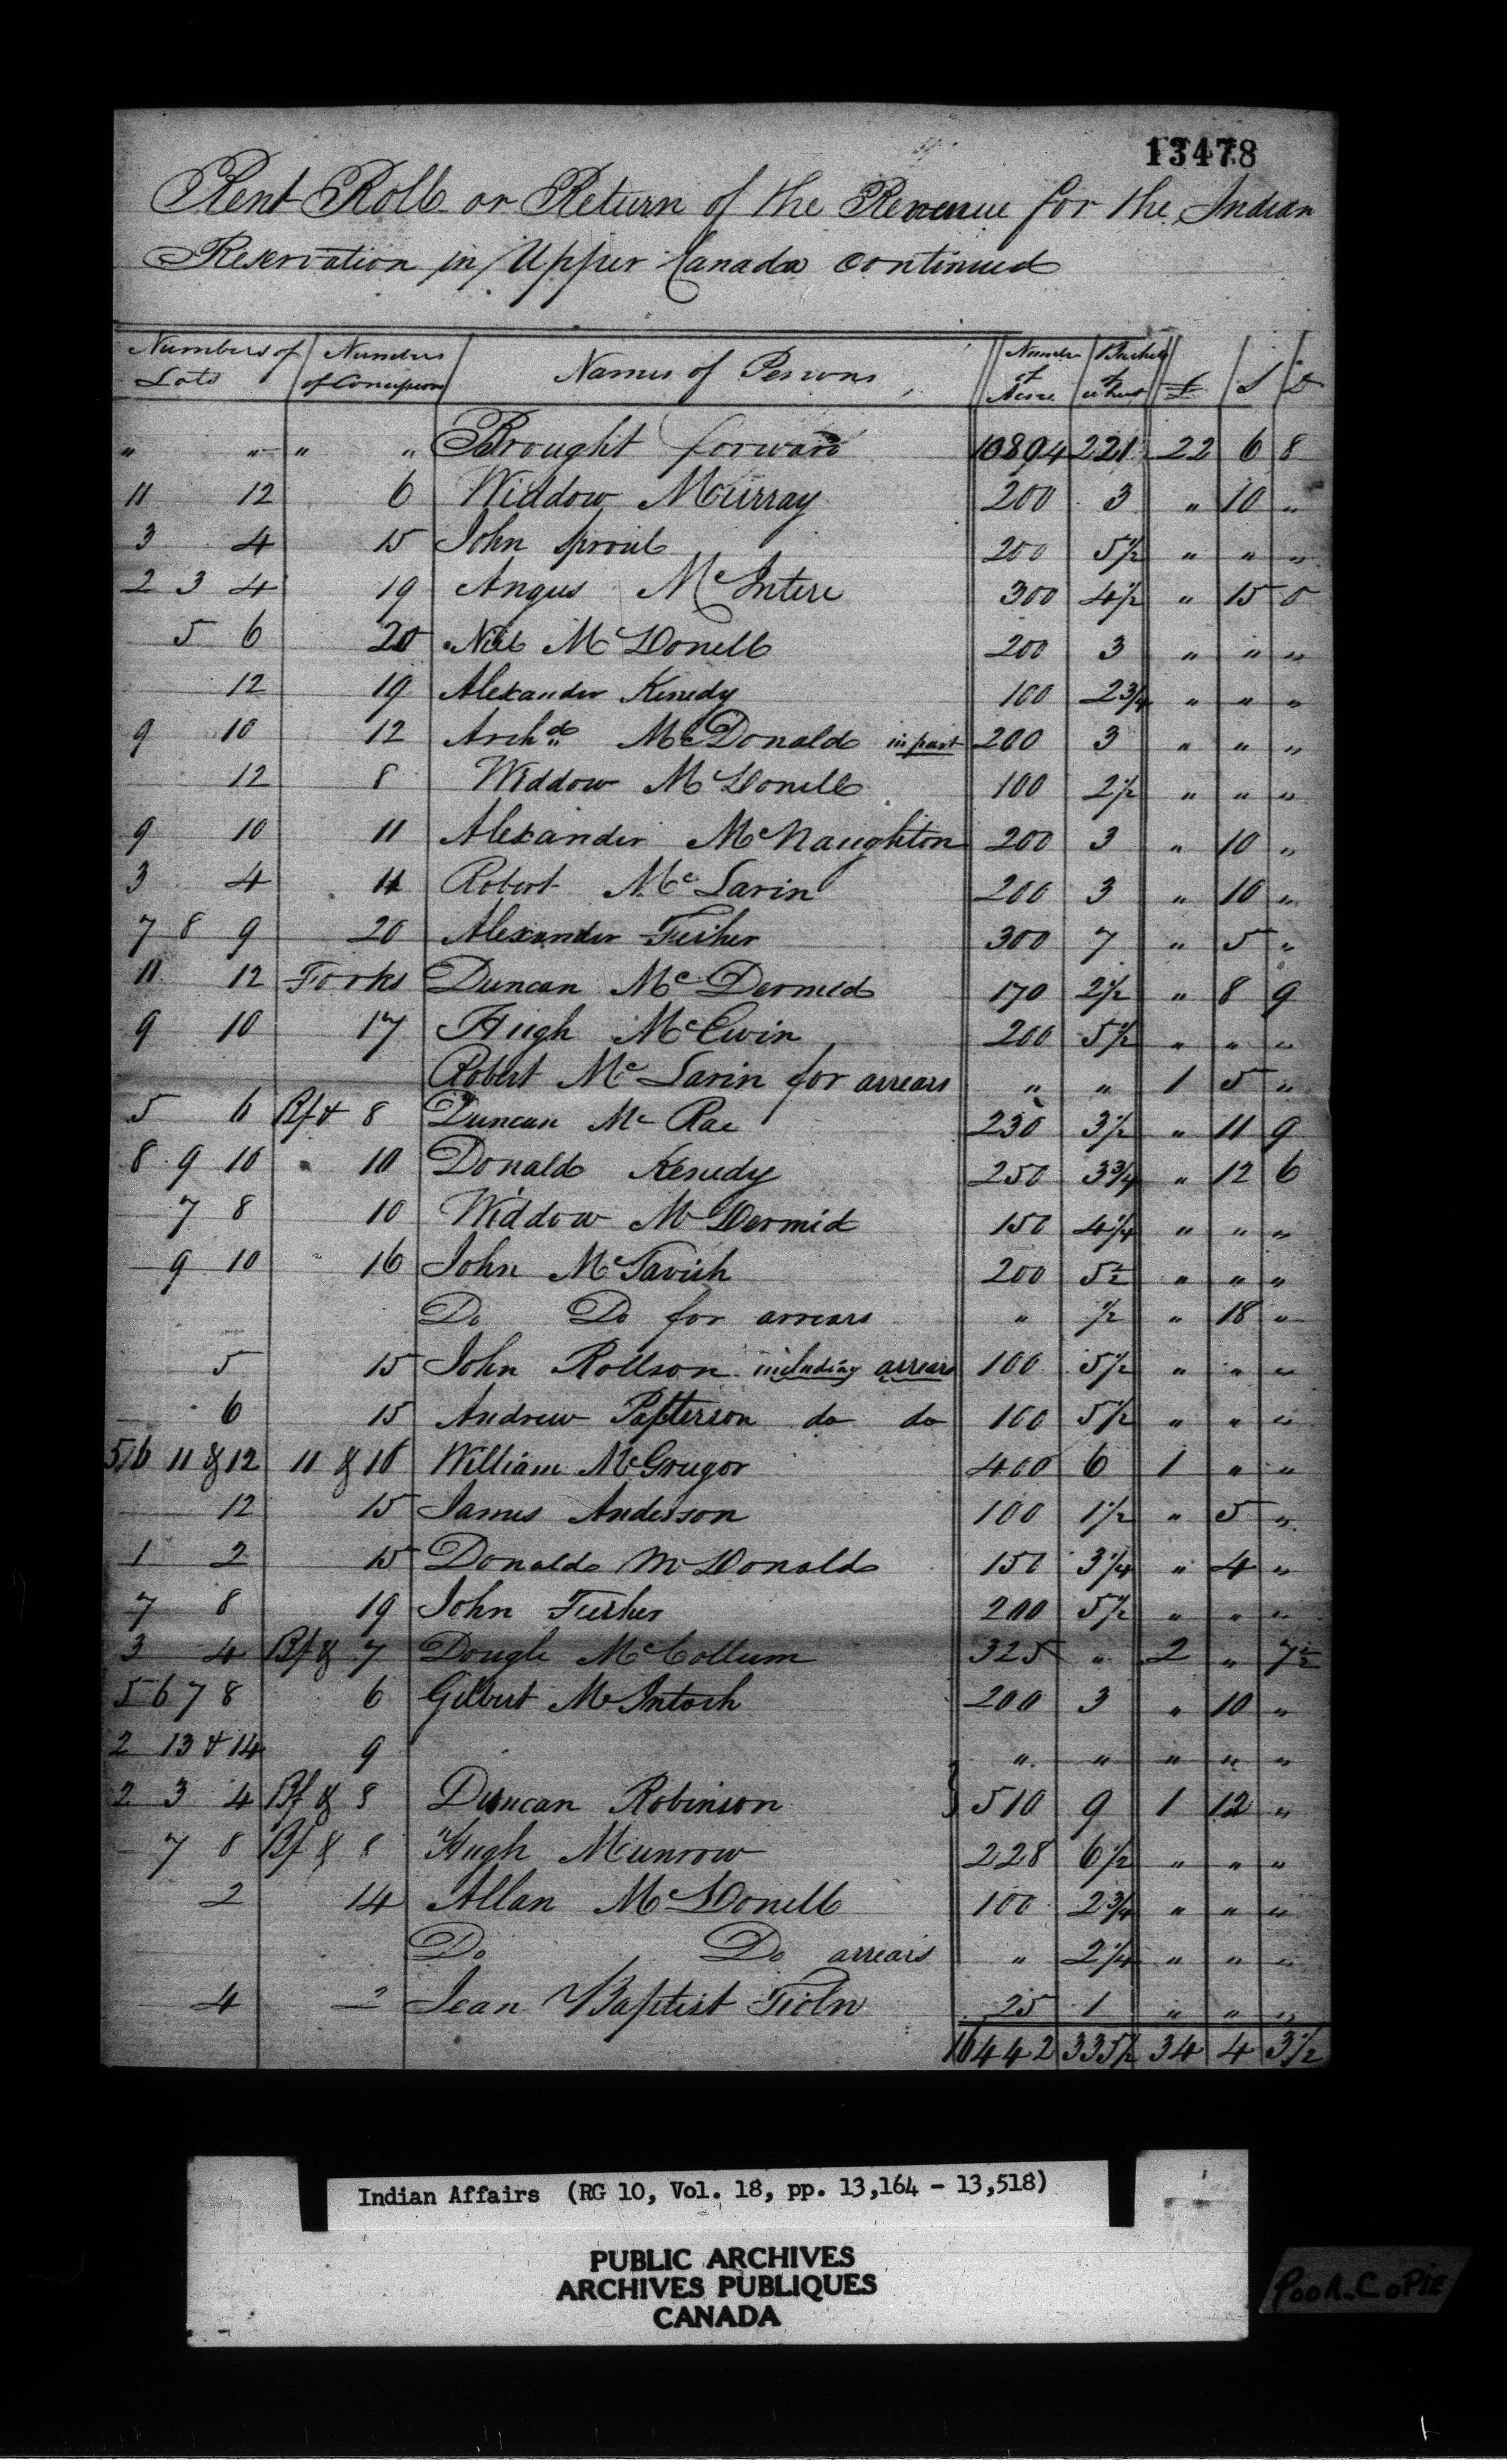 13478
Rent Roll or Return of the Revenue for the Indian
Reservation in Upper Canada continued
Numbers of Lots | Numbers of Concessions | Names of Persons | Number of Acres | Bushels of wheat | £ | S | D
" " | " " | Brought forward | 10894 | 221 | 22 | 6 | 8
11 12 | 6 | Widdow Murray | 200 | 3 | " | 10 | "
3 4 | 15 | John Sproul | 200 | 5½ | " | " | "
2 3 4 | 19 | Angus McIntere | 300 | 4½ | " | 15 | 0
5 6 | 20 | Niel McDonell | 200 | 3 | " | " | "
12 | 19 | Alexander Kenedy | 100 | 2¾ | " | " | "
9 10 | 12 | Archd McDonald in part | 200 | 3 | " | " | "
12 | 8 | Widdow McDonell | 100 | 2½ | " | " | "
9 10 | 11 | Alexander McNaughton | 200 | 3 | " | 10 | "
3 4 | 11 | Robert McLarin | 200 | 3 | " | 10 | "
7 8 9 | 20 | Alexander Fisher | 300 | 7 | " | 5 | "
11 12 | Forks | Duncan McDermid | 170 | 2½ | " | 8 | 9
9 10 | 17 | Hugh McEwin | 200 | 5½ | " | " | "
Robert McLarin for arrears | " | " | 1 | 5 | "
5 6 | Bf & 8 | Duncan McRae | 230 | 3½ | " | 11 | 9
8 9 10 | 10 | Donald Kenedy | 250 | 3¾ | " | 12 | 6
7 8 | 10 | Widdow McDermid | 150 | 4¼ | " | " | "
9 10 | 16 | John McTavish | 200 | 5½ | " | " | "
Do Do for arrears | " | ½ | " | 18 | "
5 | 15 | John Rollson including arrears | 100 | 5½ | " | " | "
6 | 15 | Andrew Patterson do do | 100 | 5½ | " | " | "
5 6 11 & 12 | 11 & 10 | William McGregor | 400 | 6 | 1 | " | "
12 | 15 | James Anderson | 100 | 1½ | " | 5 | "
1 2 | 15 | Donald McDonald | 150 | 3¼ | " | 4 | "
7 8 | 19 | John Fisher | 200 | 5½ | " | " | "
3 4 | Bf & 7 | Dougle McCollum | 325 | " | 2 | " | 7½
5 6 7 8 | 6 | Gilbert McIntosh | 200 | 3 | " | 10 | "
2 13 & 14 | 9 | " | " | " | " | "
2 3 4 | Bf & 8 | Duncan Robinson } | 510 | 9 | 1 | 12 | "
7 8 | Bf & 8 | Hugh Munrow | 228 | 6½ | " | " | "
2 | 14 | Allan McDonell | 100 | 2¾ | " | " | "
Do Do arrears | " | 2¼ | " | " | "
4 | 2 | Jean Baptist | 25 | 1 | " | " | "
16442 | 335½ | 34 | 4 | 3½
Indian Affairs (RG 10, Vol. 18, pp. 13,164 - 13,518)
PUBLIC ARCHIVES
ARCHIVES PUBLIQUES
CANADA
POOR COPIE